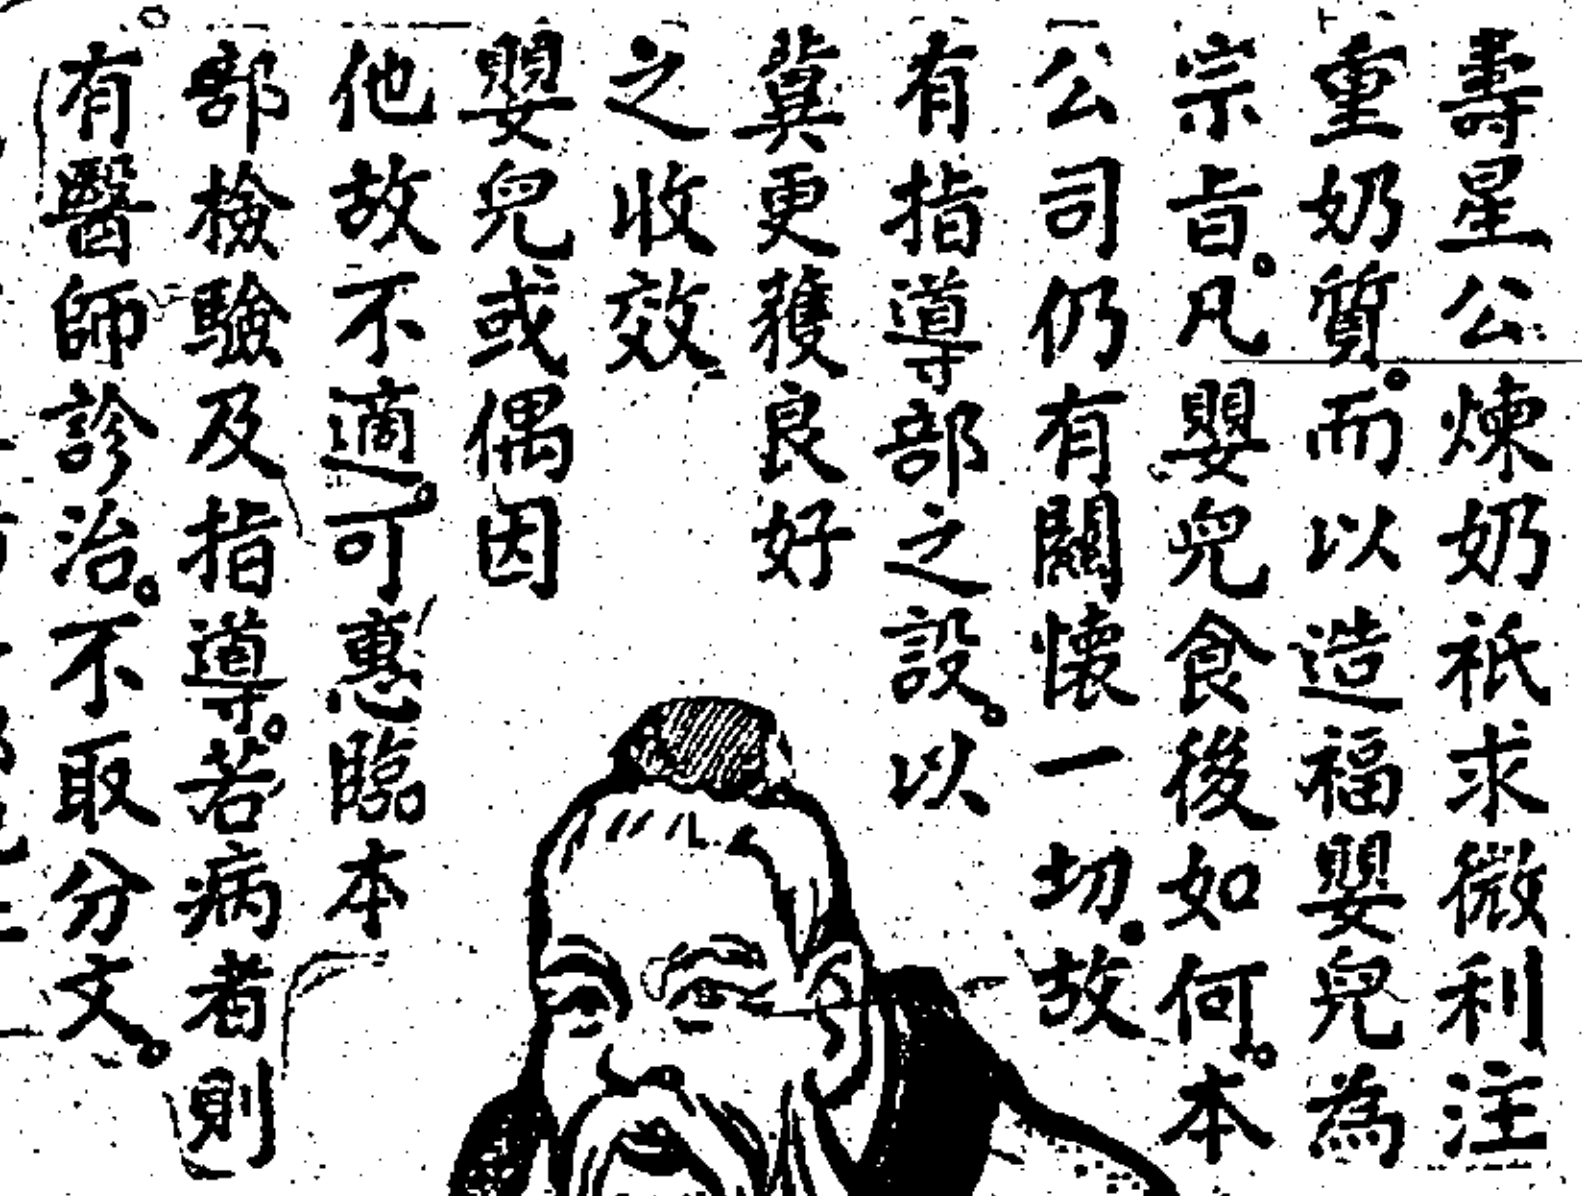 壽星公煉奶祇求微利注
重奶質。而以造福嬰兒為
宗旨。凡嬰兒食後如何。本
公司仍有關懷一切。故
有指導部之設。以
冀更獲良好
之收效
嬰兒或偶因
他故不適。可惠臨本
部檢驗及指導。若病者則
有醫師診治。不取分文。